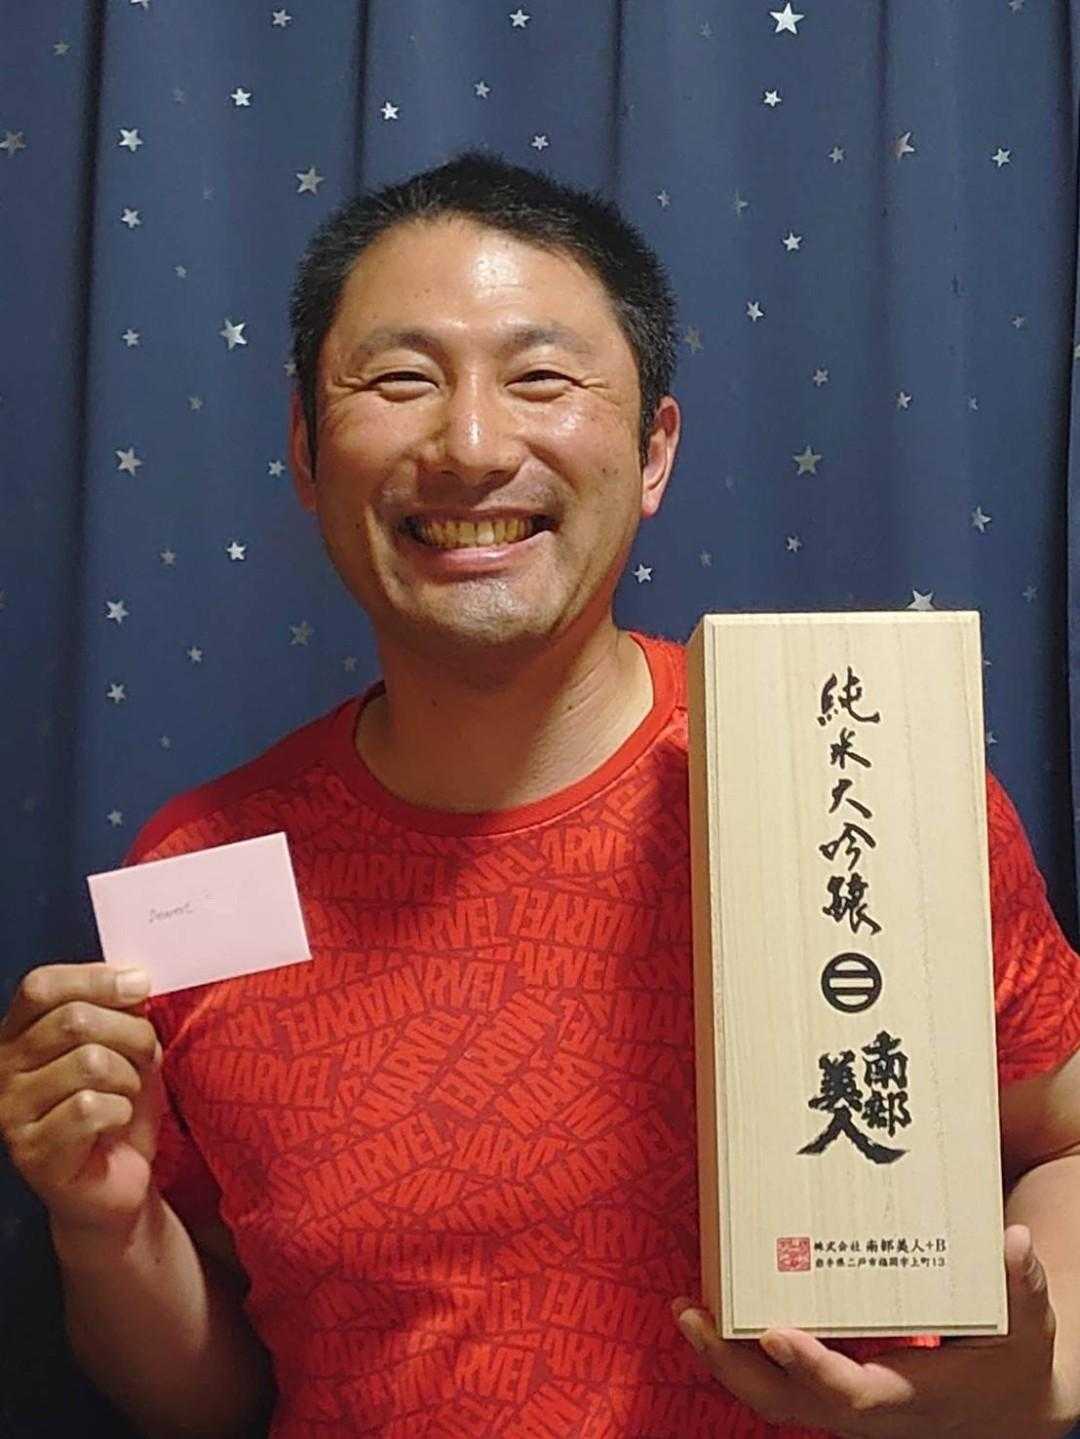 Dearest
MARVEL
純米大吟醸
南部
美人
株式会社 南部美人+B
岩手県二戸市福岡字上町13